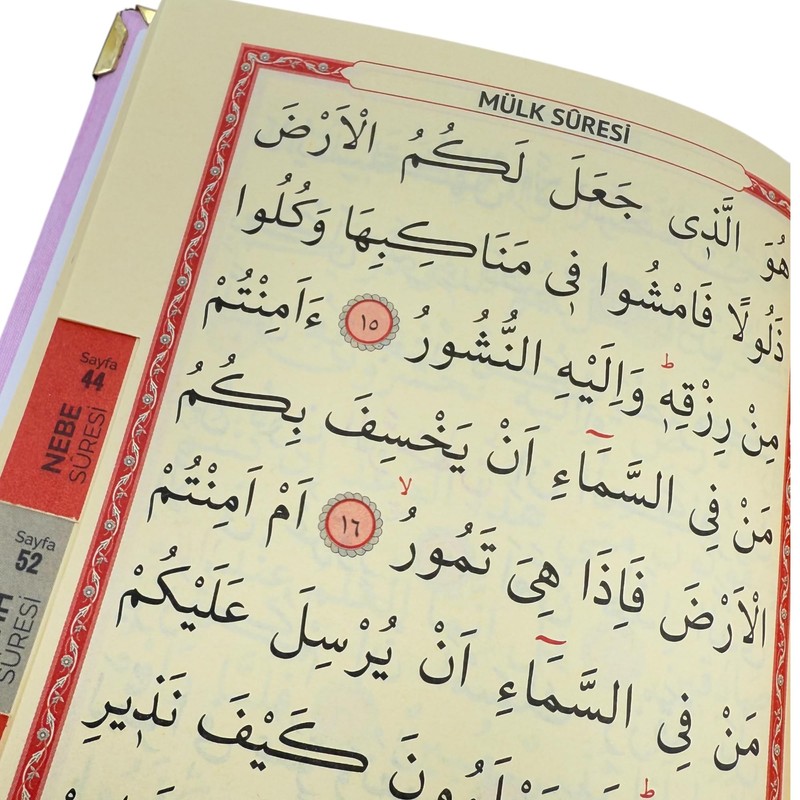 MÜLK SÛRESİ
هُوَ الَّذ۪ى جَعَلَ لَكُمُ الْاَرْضَ
ذَلُولًا فَامْشُوا ف۪ى مَنَاكِبِهَا وَكُلُوا
مِنْ رِزْقِه۪ۜ وَاِلَيْهِ النُّشُورُ ١٥ ءَاَمِنْتُمْ
مَنْ فِى السَّمَٓاءِ اَنْ يَخْسِفَ بِكُمُ
الْاَرْضَ فَاِذَا هِىَ تَمُورُۙ ١٦ اَمْ اَمِنْتُمْ
مَنْ فِى السَّمَٓاءِ اَنْ يُرْسِلَ عَلَيْكُمْ
كَيْفَ نَذ۪يرِ
Sayfa
44
NEBE
SÛRESİ
Sayfa
52
SÛRESİ